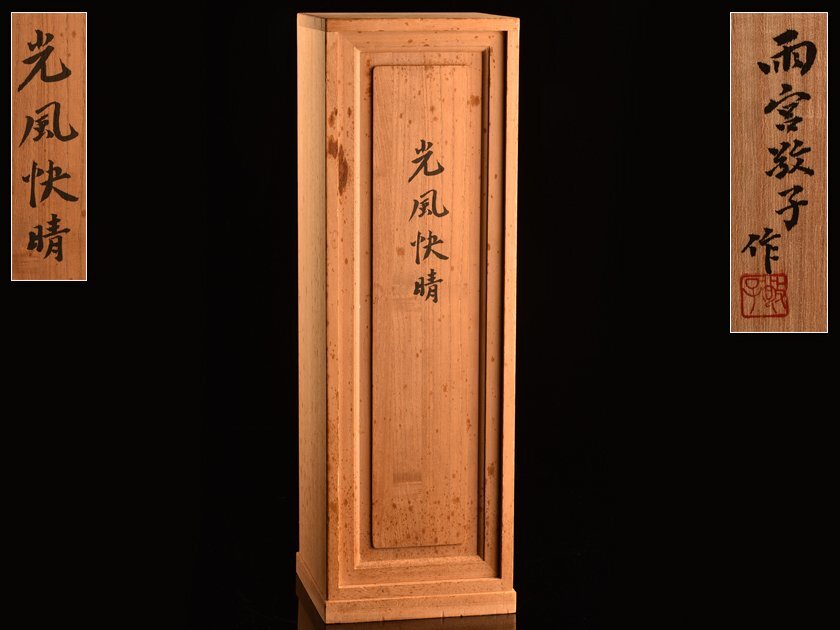 光風快晴
光風快晴
雨宮敬子
作
敬子